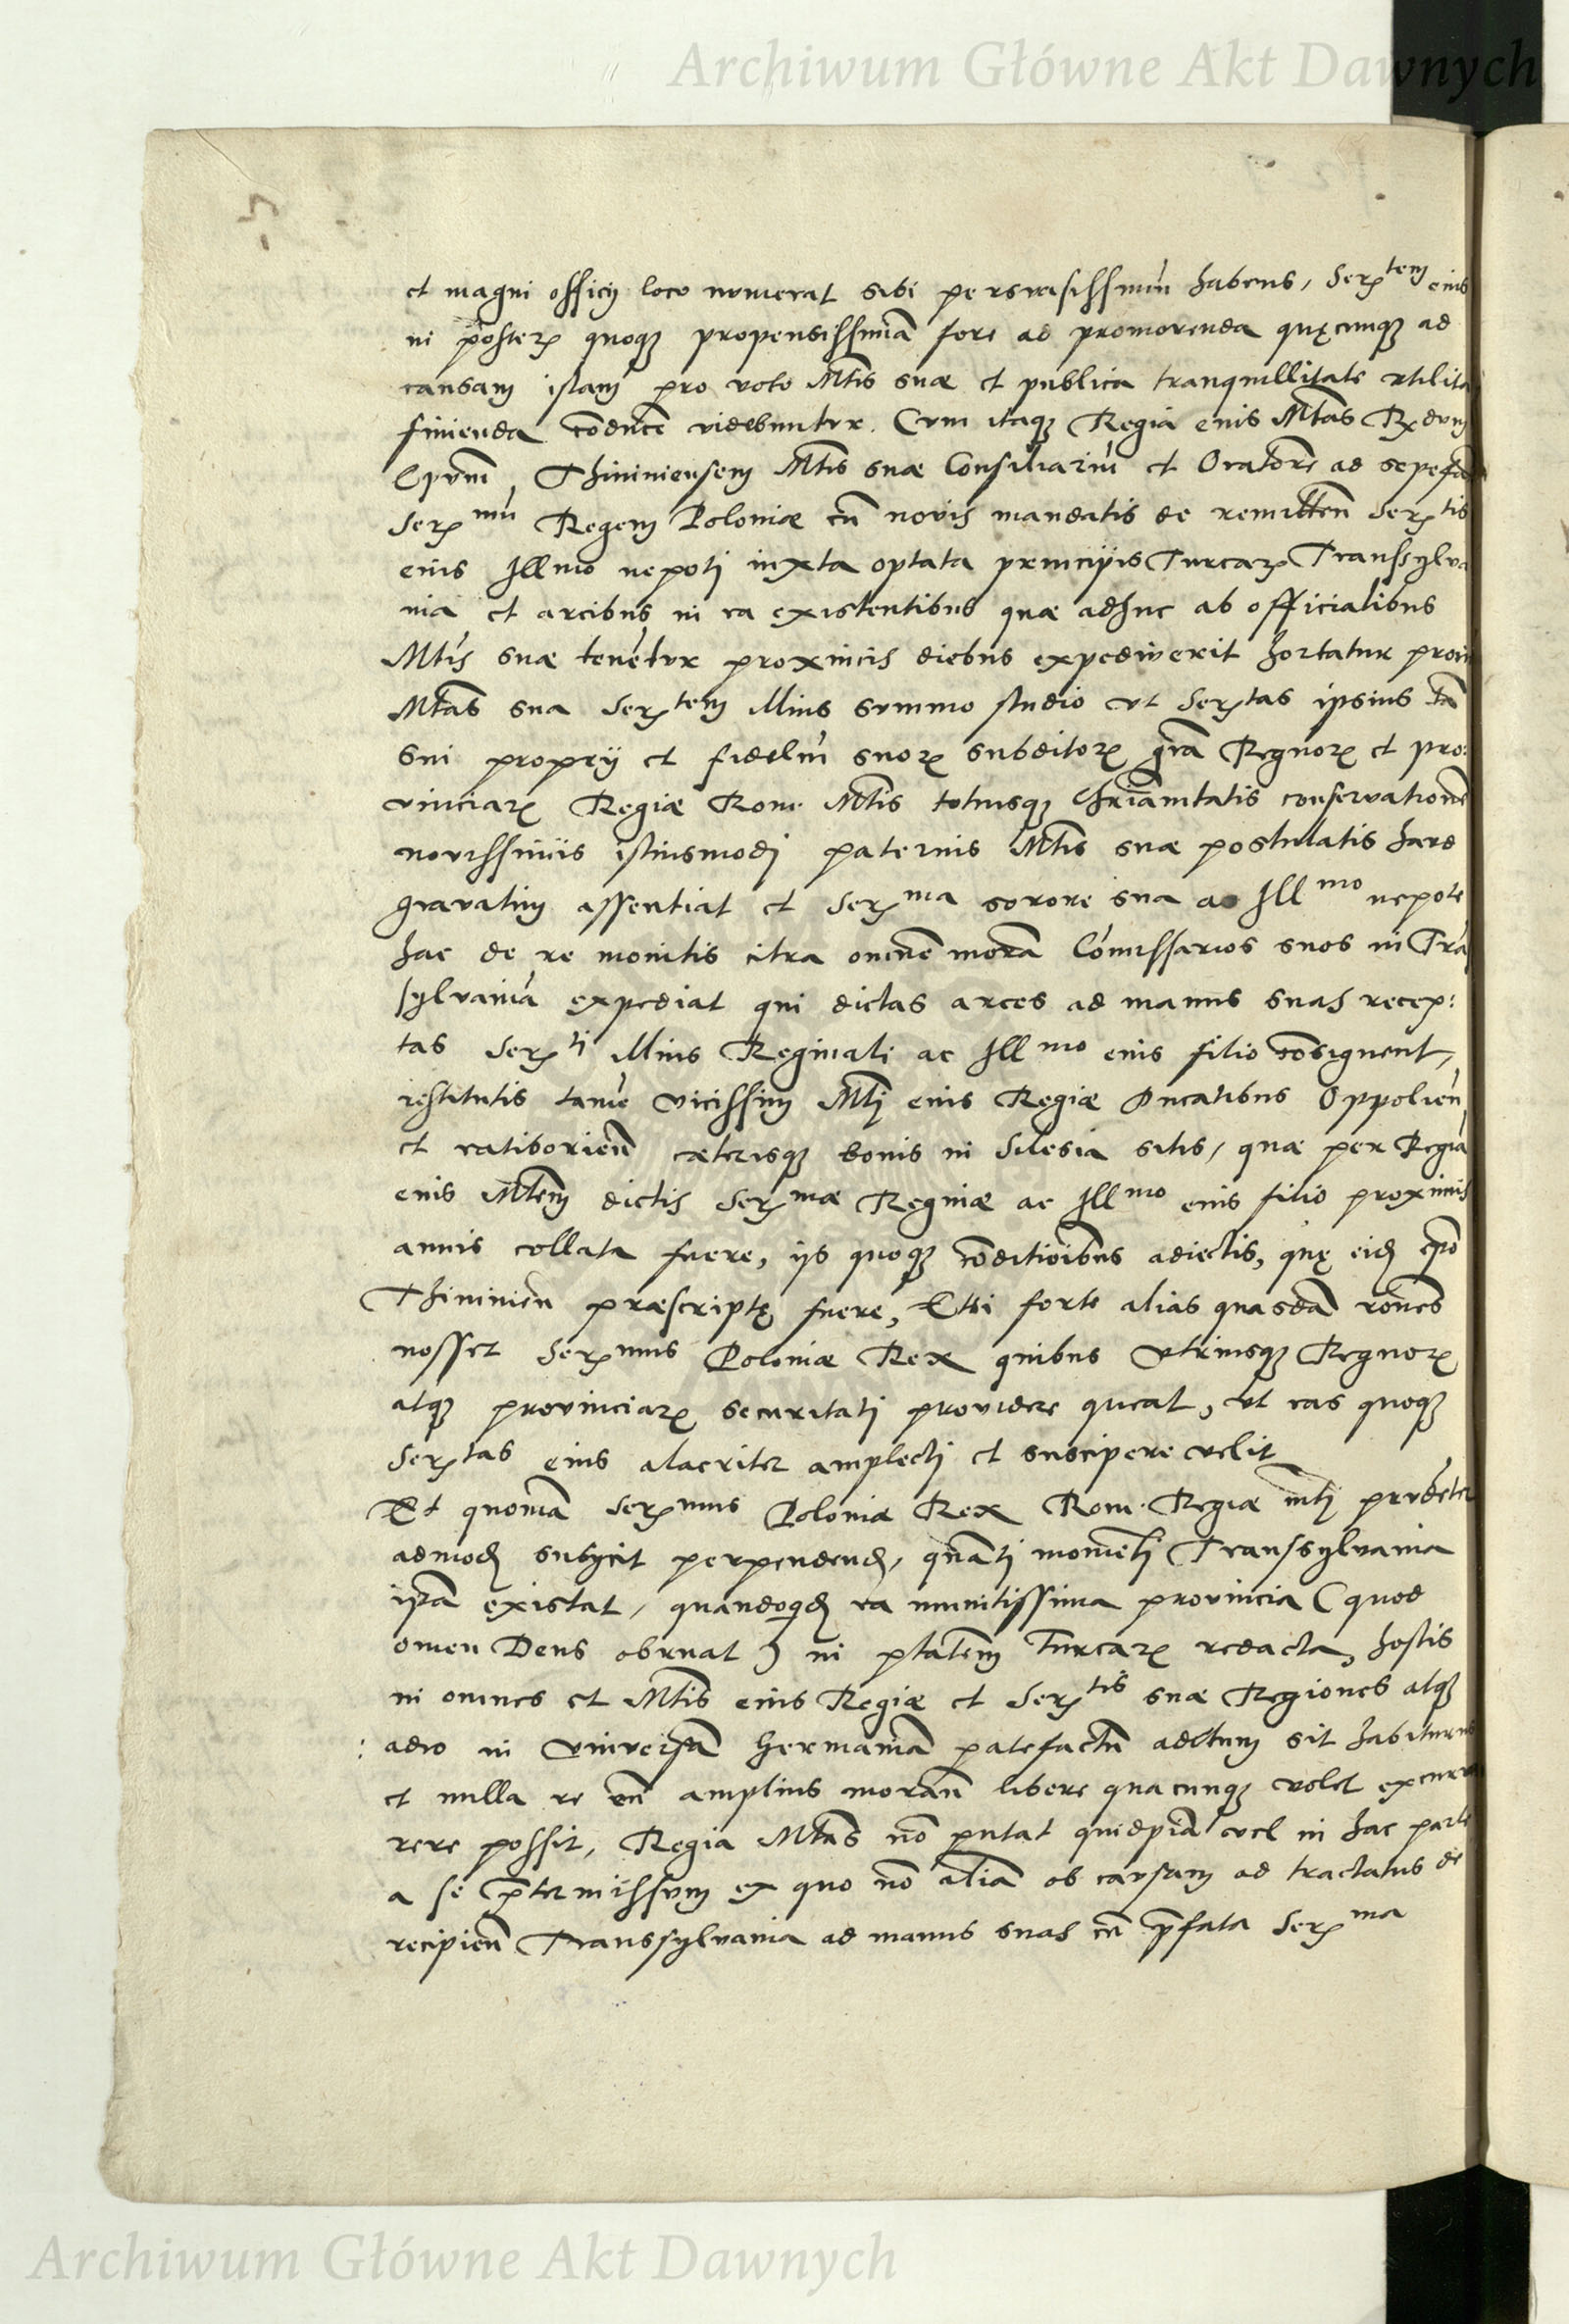 Archiwum Główne Akt Dawnych
et magni officij loco numerat sibi persuasissimũ habens, Serᵗᵉᵐ eius
in posterꝝ quoqꝫ propensissimã fore ad promouenda quęcunqꝫ ad
causam istam pro voto Mtis suæ et publica tranquillitate utilita
finienda cõducẽ videbuntur. Cum itaqꝫ Regia eius Mtas Rxdum
Epũm Thininiensem Mtis suæ Consiliariũ et Oratorẽ ad sepefa
Serᵐᵘ Regem Poloniæ cũ novis mandatis de remitteñ Serᵗⁱˢ
eius Illmo nepoti iuxta optata principis Turcarꝝ Transsylva
nia et arcibus in ea existentibus quæ adhuc ab officialibus
Mtis suæ tenẽtur proximis diebus expediverit hortatur proin
Mtas sua Serᵗᵉᵐ Illius summo studio ut Serᵗᵃˢ ipsius tã
sui proprij et fideliũ suorꝝ subditorꝝ grã Regnorꝝ et pro:
vinciarꝝ Regiæ Rom. Mtis totiusqꝫ Chriãnitatis conservationẽ
novissimis istiusmodj paternis Mtis suæ postulatis haud
gravatim assentiat et Serᵐᵃ sorore sua ac Illᵐᵒ nepote
hac de re monitis citra omnẽ morã Cõmissarios suos in Trã
sylvaniã expediat qui dictas arces ad manus suas recep:
tas Serᵗⁱ Illius Reginali ac Illᵐᵒ eius filio cõsignent,
restitutis tamẽ vicissim Mtj eius Regiæ Ducatibus Oppolieñ
et ratiborieñ cæterisqꝫ bonis in Silesia sitis, quæ per Regiã
eius Mtem dictis Serᵐæ Reginæ ac Illᵐᵒ eius filio proximis
annis collata fuere, ijs quoqꝫ cõditioibus adiectis, quę eidꝫ epõ
Thininieñ præscriptę fuere, Etsi forte alias quasdã rones
nosset Serᵐus Poloniæ Rex quibus Utriusqꝫ Regnorꝝ
atqꝫ provinciarꝝ securitatj providere queat, ut eas quoqꝫ
Serᵗᵃˢ eius alacriter amplecti et suscipere velit
Et quoniã Serᵐus Poloniæ Rex Rom. Regiæ mtj prudẽter
admodꝫ subijcit perpendendꝫ, quãti momẽti Transsylvania
ipsa existat, quandoqdꝫ ea munitissima provincia (quod
omen Deus obruat) in ptatem Turcarꝝ redacta, hostis
in omnes et Mtis eius Regiæ et Serᵗⁱˢ suæ Regiones atqꝫ
adeo in Universã Germaniã patefactũ aditum sit habiturus
et nulla re eũ amplius morañ libere quacunqꝫ volet excur
rere possit, Regia Mtas nõ putat quidpiã vel in hac parte
a se p̃termissum ex quo nõ aliã ob causam ad tractatus de
recipieñ Transsylvania ad manus suas cũ p̃fata Serᵐᵃ
Archiwum Główne Akt Dawnych